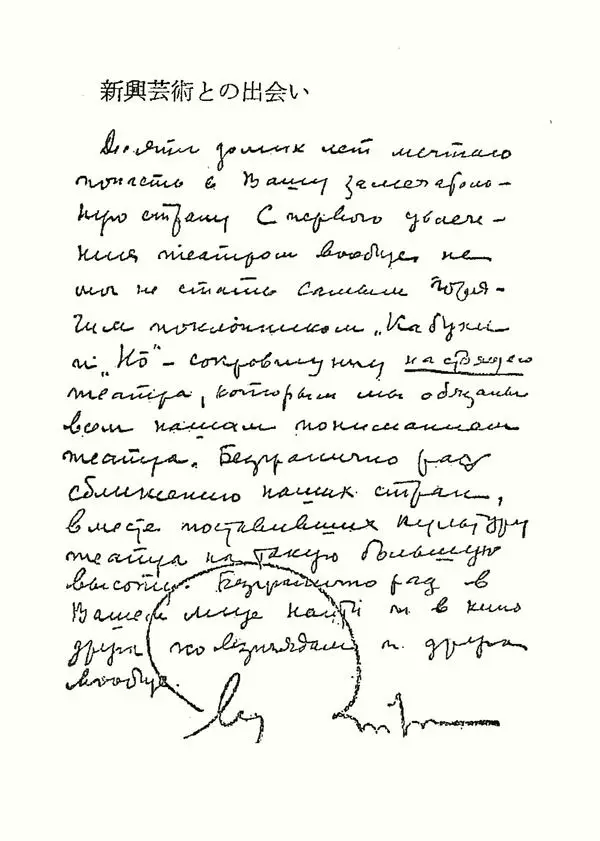 新興芸術との出会い
Десятки долгих лет мечтаю
попасть в Вашу замечатель-
ную страну С первого увлече-
ния театром вообще не
мог не стать самым горя-
чим поклонником „Кабуки
и „Но“ – сокровищницу настоящего
театра, которым мы обязаны
всем нашим пониманием
театра. Безгранично рад
сближению наших стран,
вместе поставивших культуру
театра на такую большую
высоту. Безгранично рад в
Вашем лице найти и в кино
друга по взглядам и друга
вообще.